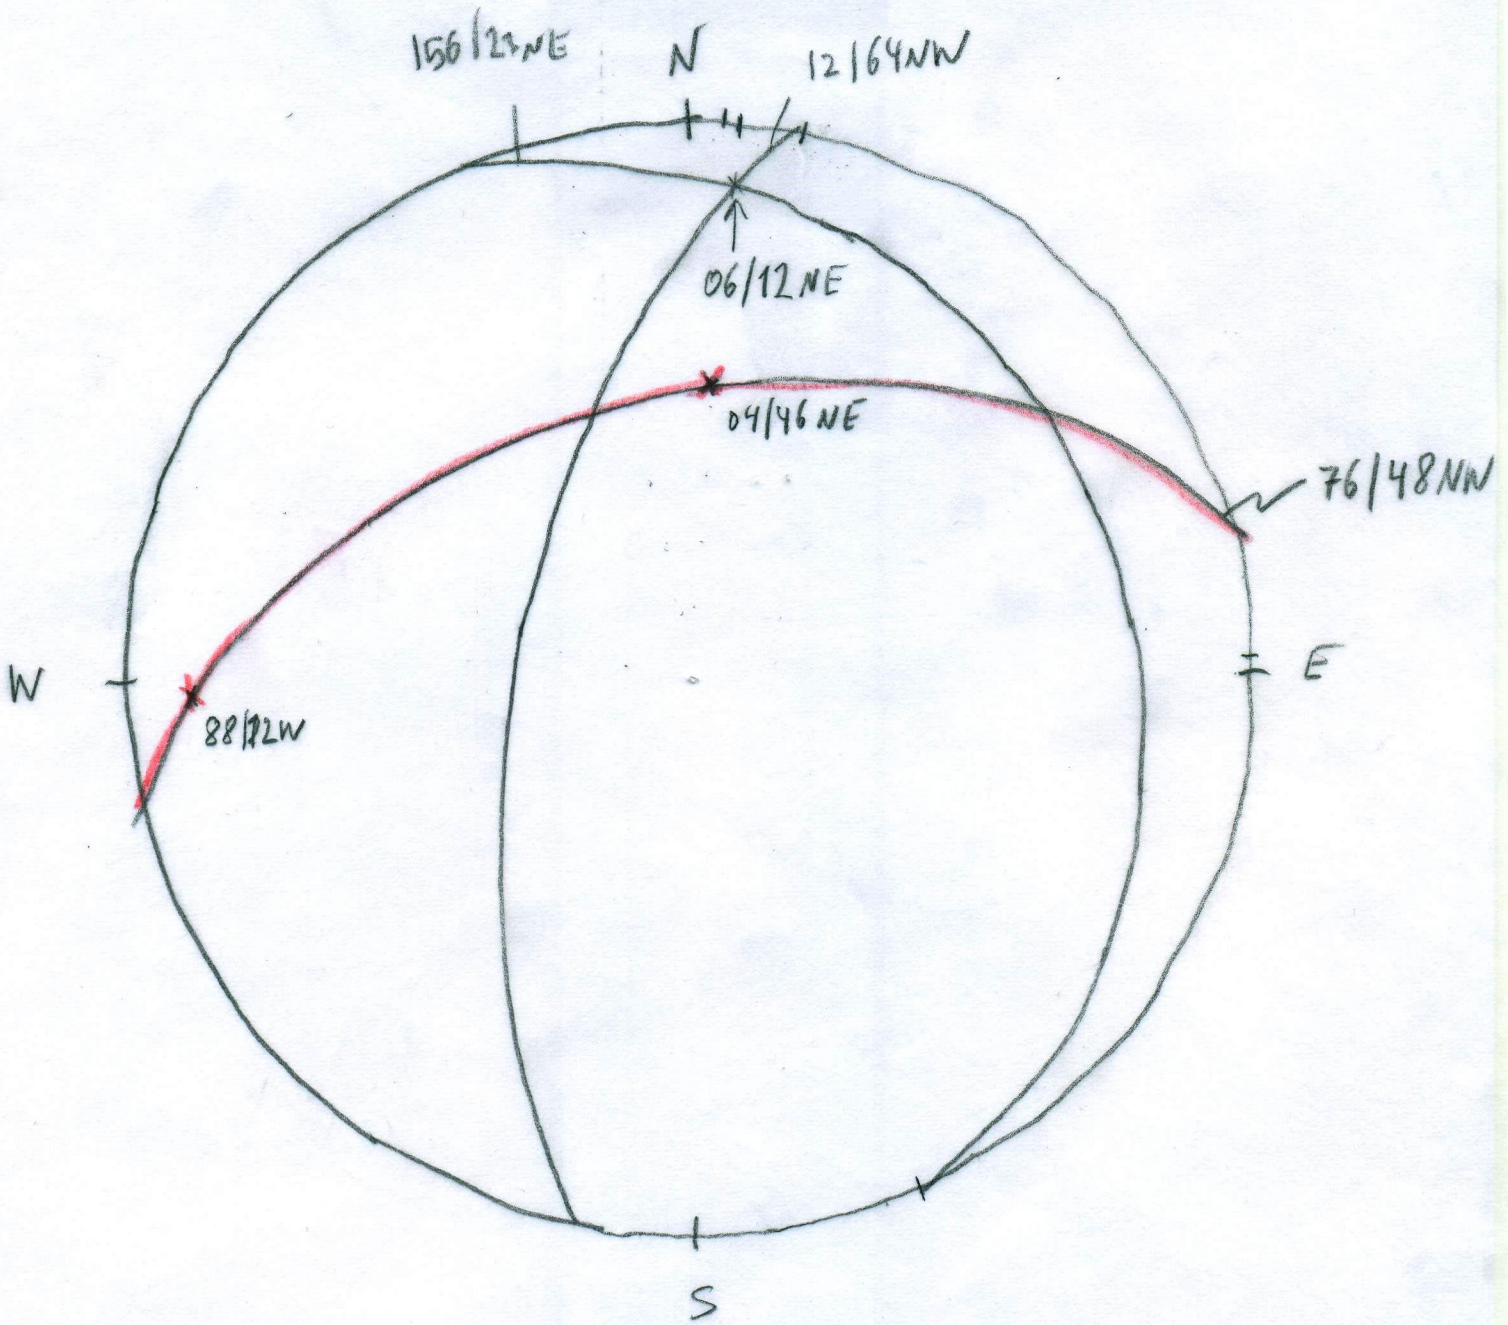 156/23NE
N
12/64NW
06/12NE
04/46NE
76/48NW
W
88/12W
E
S